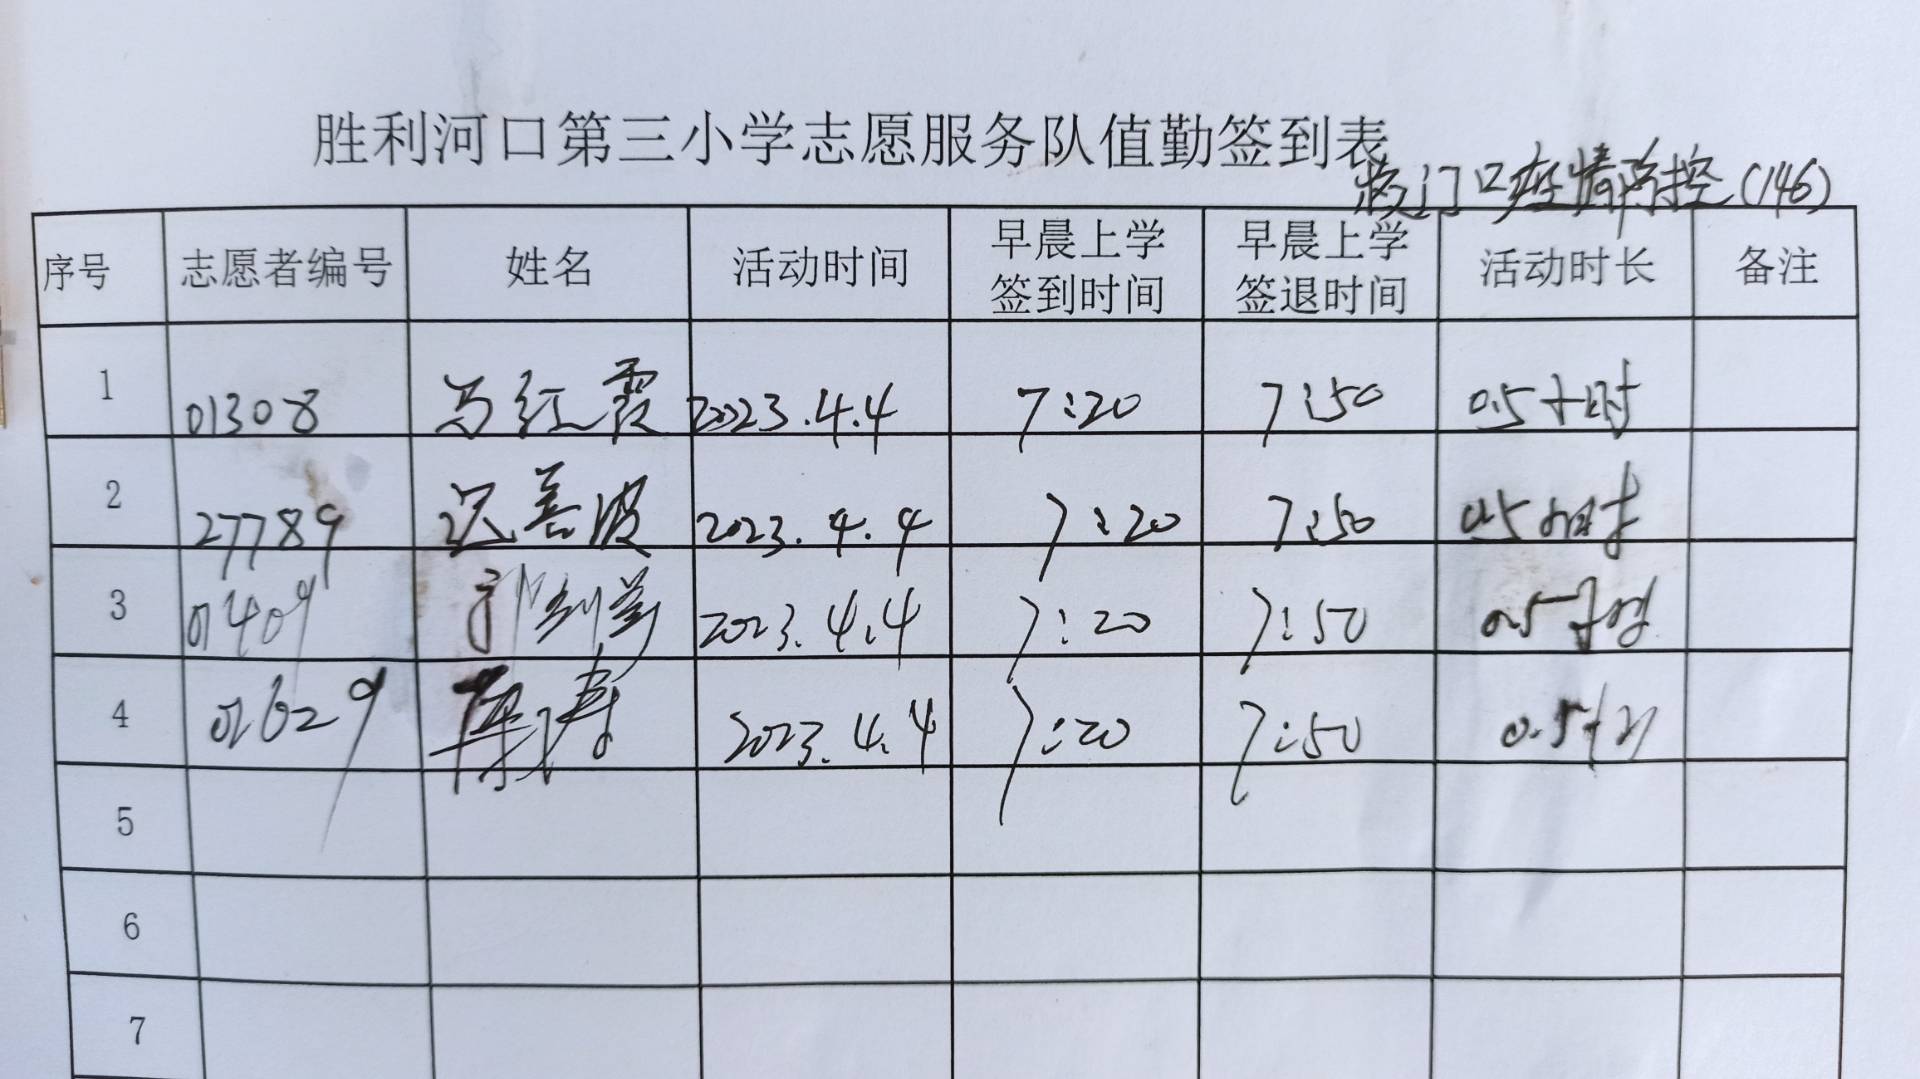 胜利河口第三小学志愿服务队值勤签到表
校门口疫情防控(146)
序号 志愿者编号 姓名 活动时间 早晨上学签到时间 早晨上学签退时间 活动时长 备注
1 01308 马红霞 2023.4.4 7:20 7:50 0.5小时
2 27789 迟善波 2023.4.4 7:20 7:50 0.5小时
3 01409 2023.4.4 7:20 7:50 0.5小时
4 01629 陈涛 2023.4.4 7:20 7:50 0.5小时
5
6
7